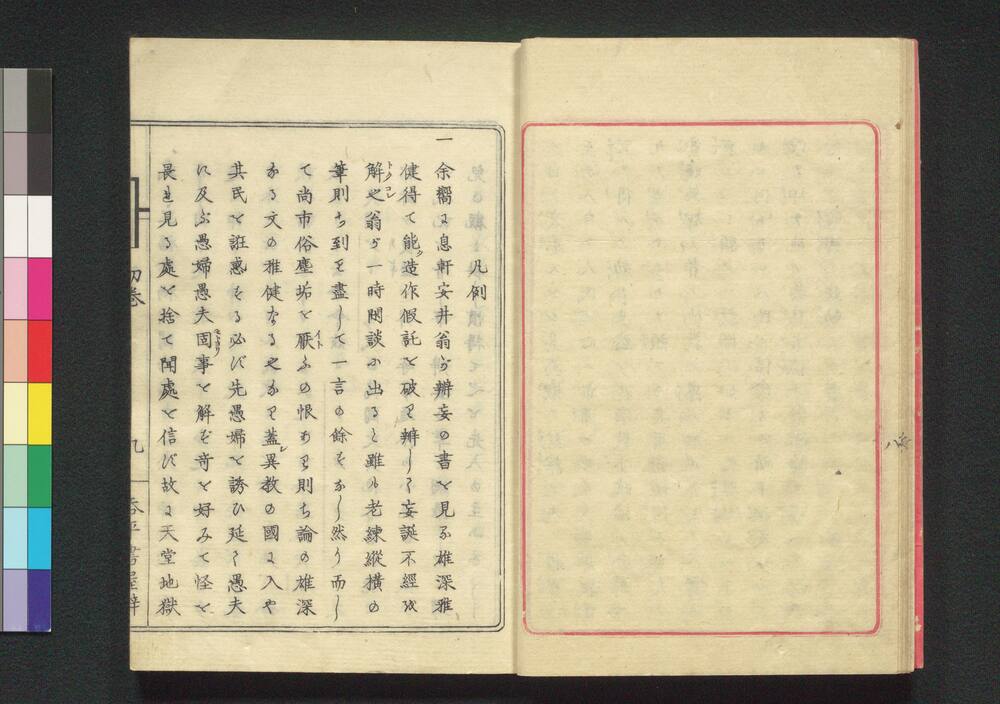 凡例
一
余嚮に息軒安井翁が辨妄の書を見る雄深雅
健得て能ク造作假託を破り辨して妄誕不經を
解トクコレや翁が一時閑談に出ると雖も老練縱横の
筆則ち到り盡して一言の餘すなし然り而し
て尚市俗塵垢を厭イトふの恨あり則ち論の雄深
なる文の雅健なるやなり蓋シ異教の國に入や
其民を誑惑する必ず先愚婦を誘ひ延て愚夫
に及ぶ愚婦愚夫固モトヨリ事を解せず奇を好みて怪を
畏れ見る處を捨て聞處を信ず故に天堂地獄
初卷
九